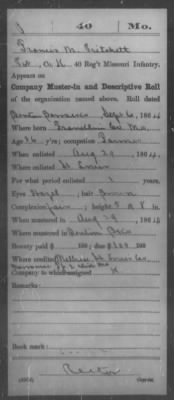 40 Mo.
Francis M. Pritchett
Pvt, Co. K 40 Reg't Missouri Infantry.
Appears on
Company Muster-in and Descriptive Roll
of the organization named above. Roll dated
Benton Barracks Sept 6, 1864
Where born Franklin Co. Mo.
Age 26 y'rs; occupation Farmer
When enlisted Aug 29, 1864
Where enlisted St Louis
For what period enlisted years.
Eyes Hazel, hair Brown
Complexion fair; height 5 ft. 8 in.
When mustered in Aug 29, 1864
Where mustered in Benton Bks
Bounty paid $ 100; due $100 100
Where credited St Louis Co.
Company to which assigned K
Remarks:
Book mark: